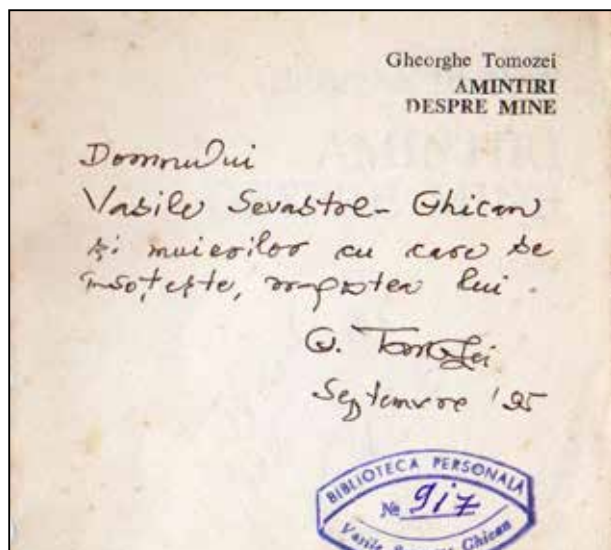 Gheorghe Tomozei
AMINTIRI
DESPRE MINE
Domnului
Vasile Sevastre-Ghican
și muierilor cu care se
însoțește, lui.
G. Tomozei
Septemvre '95
BIBLIOTECA PERSONALĂ
№ 917
Vasile Ghican